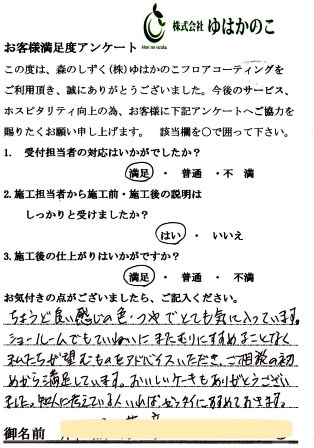 Mori no sizuku
株式会社 ゆはかのこ
お客様満足度アンケート
この度は、森のしずく(株)ゆはかのこフロアコーティングを
ご利用頂き、誠にありがとうございました。今後のサービス、
ホスピタリティ向上の為、お客様に下記アンケートへご協力を
賜りたくお願い申し上げます。 該当欄を〇で囲って下さい。
1. 受付担当者の対応はいかがでしたか?
満足 ・ 普通 ・不 満
2.施工担当者から施工前・施工後の説明は
しっかりと受けましたか?
はい ・ いいえ
3.施工後の仕上がりはいかがですか?
満足 ・ 普通 ・ 不満
お気付きの点がございましたら、ご記入ください。
ちょうど良い感じの色・つやでとても気に入っています。
ショールームでもていねいに またむりにすすめることなく
私たちが望むものをアドバイスいただき、ご相談の初
めから満足しています。おいしいケーキもありがとうござい
ました。他に考えている人がいれば、ゼッタイにすすめておきます。
御名前